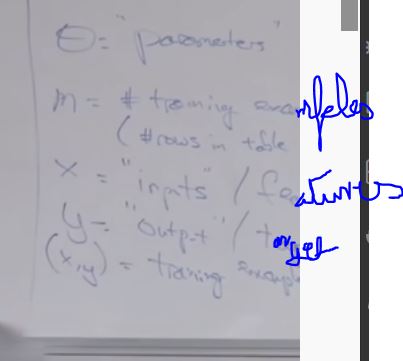 θ = "parameters"
m = # training examples
(# rows in table
x = "inputs" / features
y = "output" / target
(x,y) = training example